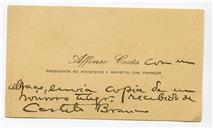 Affonso Costa com um
PRESIDENTE DO MINISTERIO E MINISTRO DAS FINANÇAS
abraço, envia copia de um
telegr. recebido de
Castelo Branco